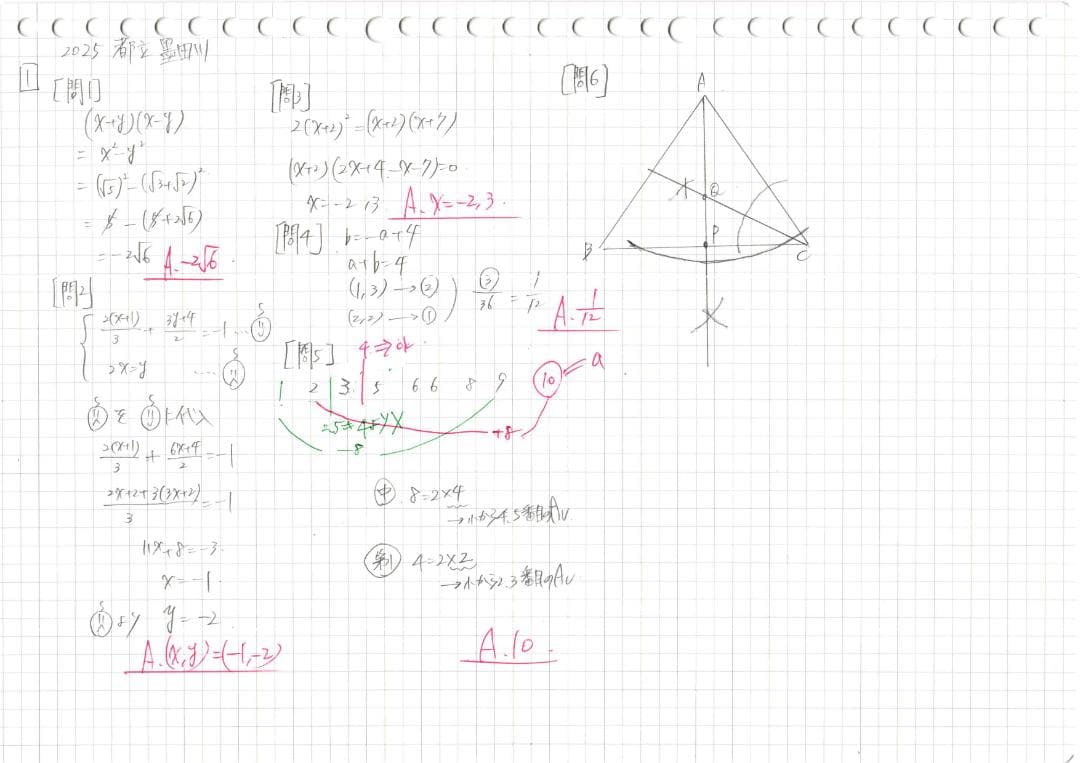 2025 都立 墨田川
1
[問1]
(x+y)(x-y)
= x²-y²
= (√5)²-(√3+√2)²
= 5-(5+2√6)
= -2√6 A. -2√6
[問2]
2(x+1)/3 + 3y+4/2 = -1 …
2x=y …
を に代入
2(x+1)/3 + 6x+4/2 = -1
2x+2+3(3x+2)/3 = -1
11x+8=-3
x=-1
より y=-2
A. (x,y)=(-1,-2)
[問3]
2(x+2)²=(x+2)(x+7)
(x+2)(2x+4-x-7)=0
x=-2,3 A. x=-2,3
[問4] b=-a+4
a+b=4
(1,3) → ②
(2,2) → ①
③/36 = 1/12
A. 1/12
[問5] 4 ⇒ ok
1 2 3 5 6 6 8 9 10 ⇐ a
-8
+8
中 8=2×4
→小から4.5番目のAv
第1 4=2×2
→小から2.3番目のAv
A. 10
[問6]
A
Q
P
B
C